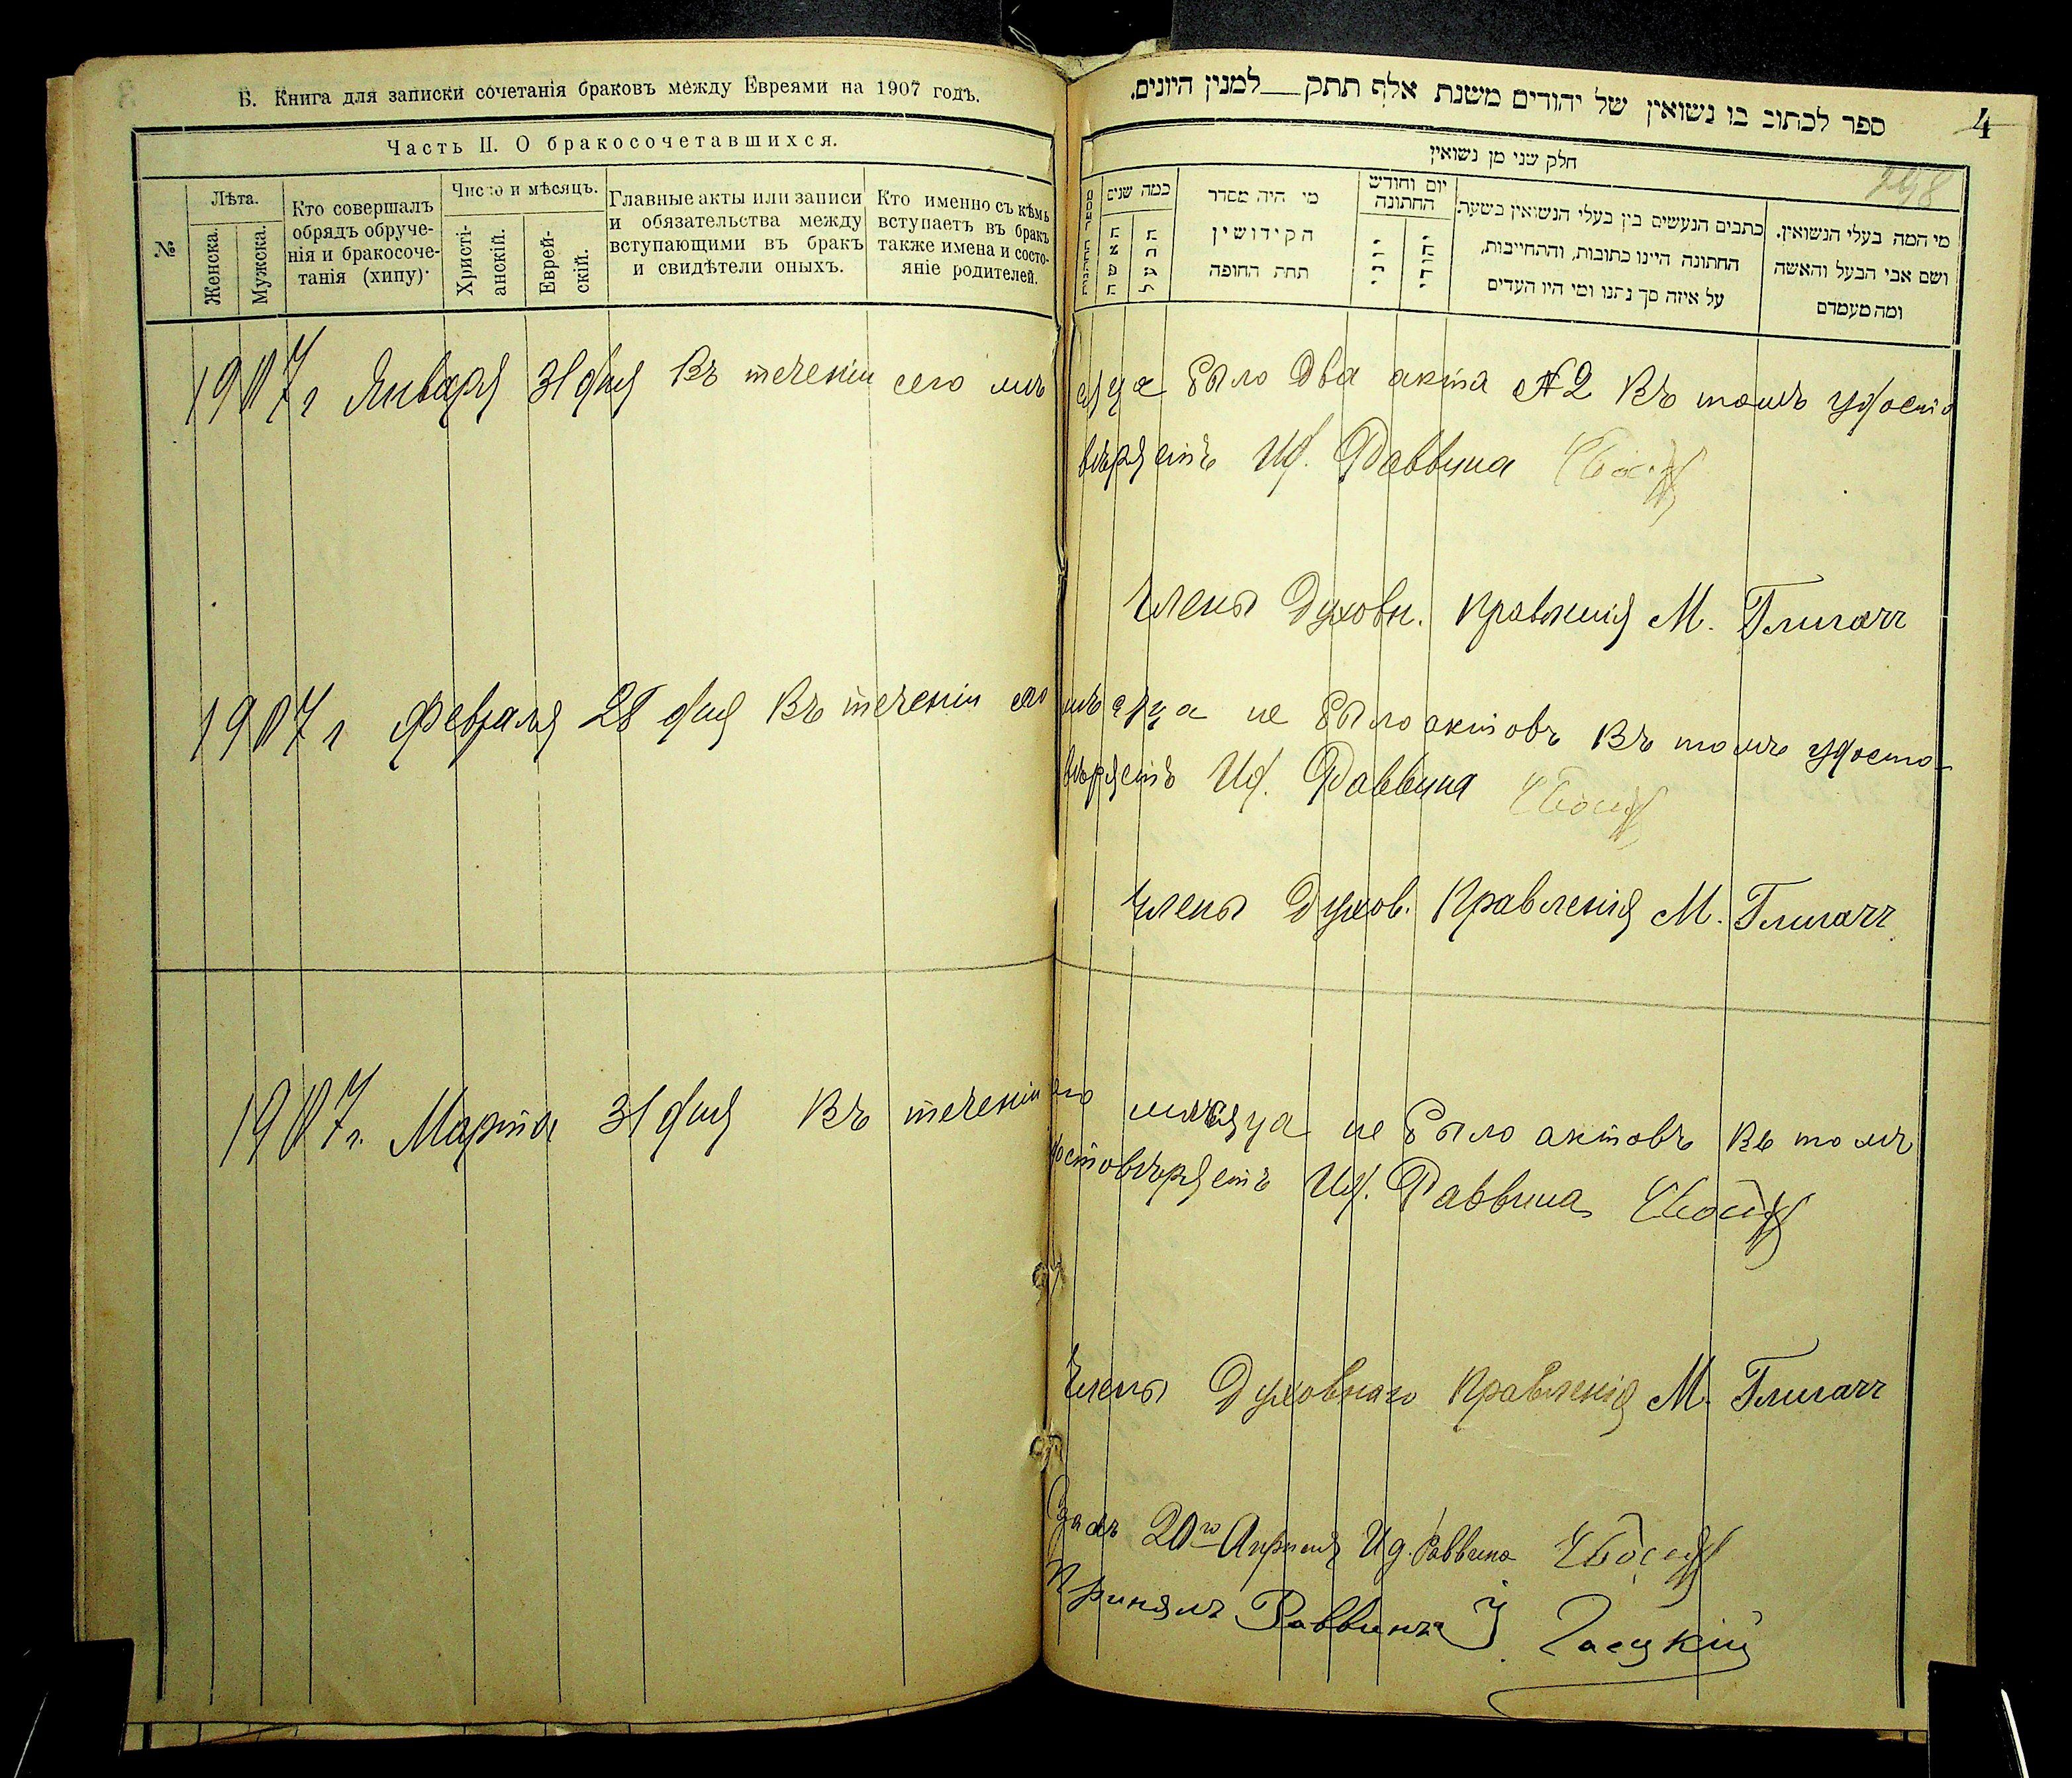 Б. Книга для записки сочетанія браковъ между Евреями на 1907 годъ.
Часть II. О бракосочетавшихся.
№
Лѣта.
Женска.
Мужска.
Кто совершалъ
обрядъ обруче-
нія и бракосоче-
танія (хипу)
Число и мѣсяцъ.
Христі-
анскій.
Еврей-
скій.
Главные акты или записи
и обязательства между
вступающими въ бракъ
и свидѣтели оныхъ.
Кто именно съ кѣмъ
вступаетъ въ бракъ
также имена и состо-
яніе родителей.
ספר לכתוב בו נשואין של יהודים משנת אלף תתק למנין היונים.
4
198
חלק שני מן נשואין
מספר החתונות
כמה שנים
האשה
הבעל
מי היה מסדר
הקידושין
תחת החופה
יום וחודש
החתונה
יוני
יהודי
כתבים הנעשים בין בעלי הנשואין בשעת
החתונה היינו כתובות, והתחייבות,
על איזה סך נתנו ומי היו העדים
מי המה בעלי הנשואין.
ושם אבי הבעל והאשה
ומה מעמדם
1907 г Января 31 дня Въ теченіи сего мѣсяца было два акта №2 Въ томъ удосто
вѣряетъ Ид. Раввина
Члены Духовн. Правленія М. Глигачъ
1907 г Февраля 28 дня Въ теченіи сего мѣсяца не было актовъ Въ томъ удосто-
вѣряетъ Ид. Раввина
Члены Духов. Правленія М. Глигачъ
1907 г. Марта 31 дня Въ теченіи сего мѣсяца не было актовъ Въ томъ
удостовѣряетъ Ид. Раввина
Члены Духовнаго Правленія М. Глигачъ
Сдалъ 20го Апрѣля Ид. Раввина
Принялъ Раввинъ